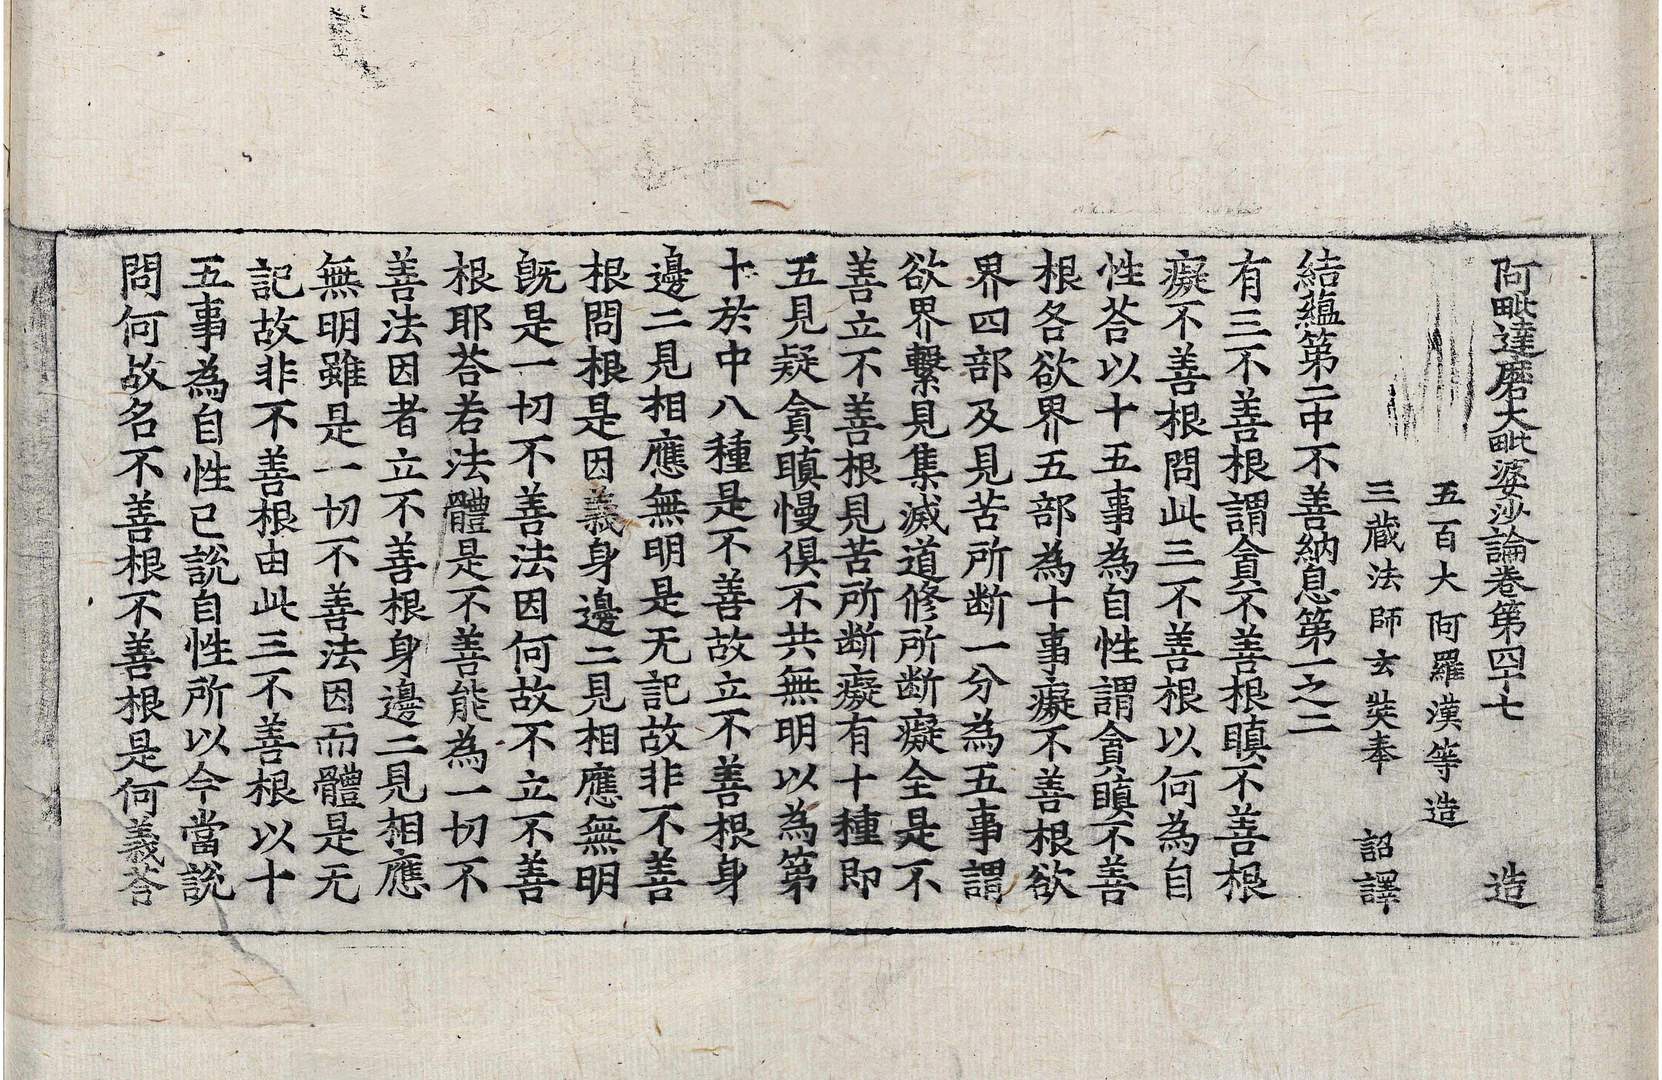 阿毗達磨大毗婆沙論卷第四十七 造
五百大阿羅漢等造
三藏法師玄奘奉 詔譯
結蘊第二中不善納息第一之二
有三不善根謂貪不善根瞋不善根
癡不善根問此三不善根以何為自
性荅以十五事為自性謂貪瞋不善
根各欲界五部為十事癡不善根欲
界四部及見苦所斷一分為五事謂
欲界繫見集滅道修所斷癡全是不
善立不善根見苦所斷癡有十種即
五見疑貪瞋慢俱不共無明以為第
十於中八種是不善故立不善根身
邊二見相應無明是无記故非不善
根問根是因義身邊二見相應無明
旣是一切不善法因何故不立不善
根耶荅若法體是不善能為一切不
善法因者立不善根身邊二見相應
無明雖是一切不善法因而體是无
記故非不善根由此三不善根以十
五事為自性已說自性所以今當說
問何故名不善根不善根是何義荅